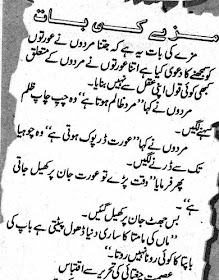 مزے کی بات
مزے کی بات یہ ہے کہ جتنا مردوں نے عورتوں
کو سمجھنے کا دعویٰ کیا ہے اتنا عورتوں نے مردوں کے متعلق
کبھی کوئی قول اپنی عقل سے نہیں بنایا۔
مردوں نے کہا "مرد ظالم ہوتا ہے" وہ چپ چاپ ظلم
سہنے لگیں۔
مردوں نے کہا "عورت ڈرپوک ہوتی ہے" وہ چوہیا
تک سے ڈرنے لگیں۔
پھر فرمایا "وقت پڑے تو عورت جان پر کھیل جاتی
ہے"۔
بس جھٹ جان پر کھیل گئیں۔
"ماں کی مامتا کا ساری دنیا ڈھول پیٹتی ہے باپ کی
باپتا کا کوئی نہیں روتا"۔
عصمت چغتائی کی تحریر سے اقتباس